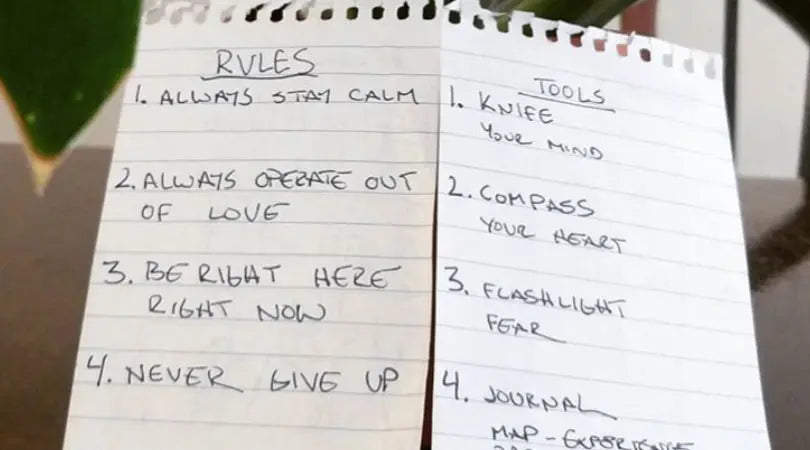 RULES
1. ALWAYS STAY CALM
2. ALWAYS OPERATE OUT
OF LOVE
3. BE RIGHT HERE
RIGHT NOW
4. NEVER GIVE UP
TOOLS
1. KNIFE
YOUR MIND
2. COMPASS
YOUR HEART
3. FLASHLIGHT
FEAR
4. JOURNAL
MAP - EXPERIENCE